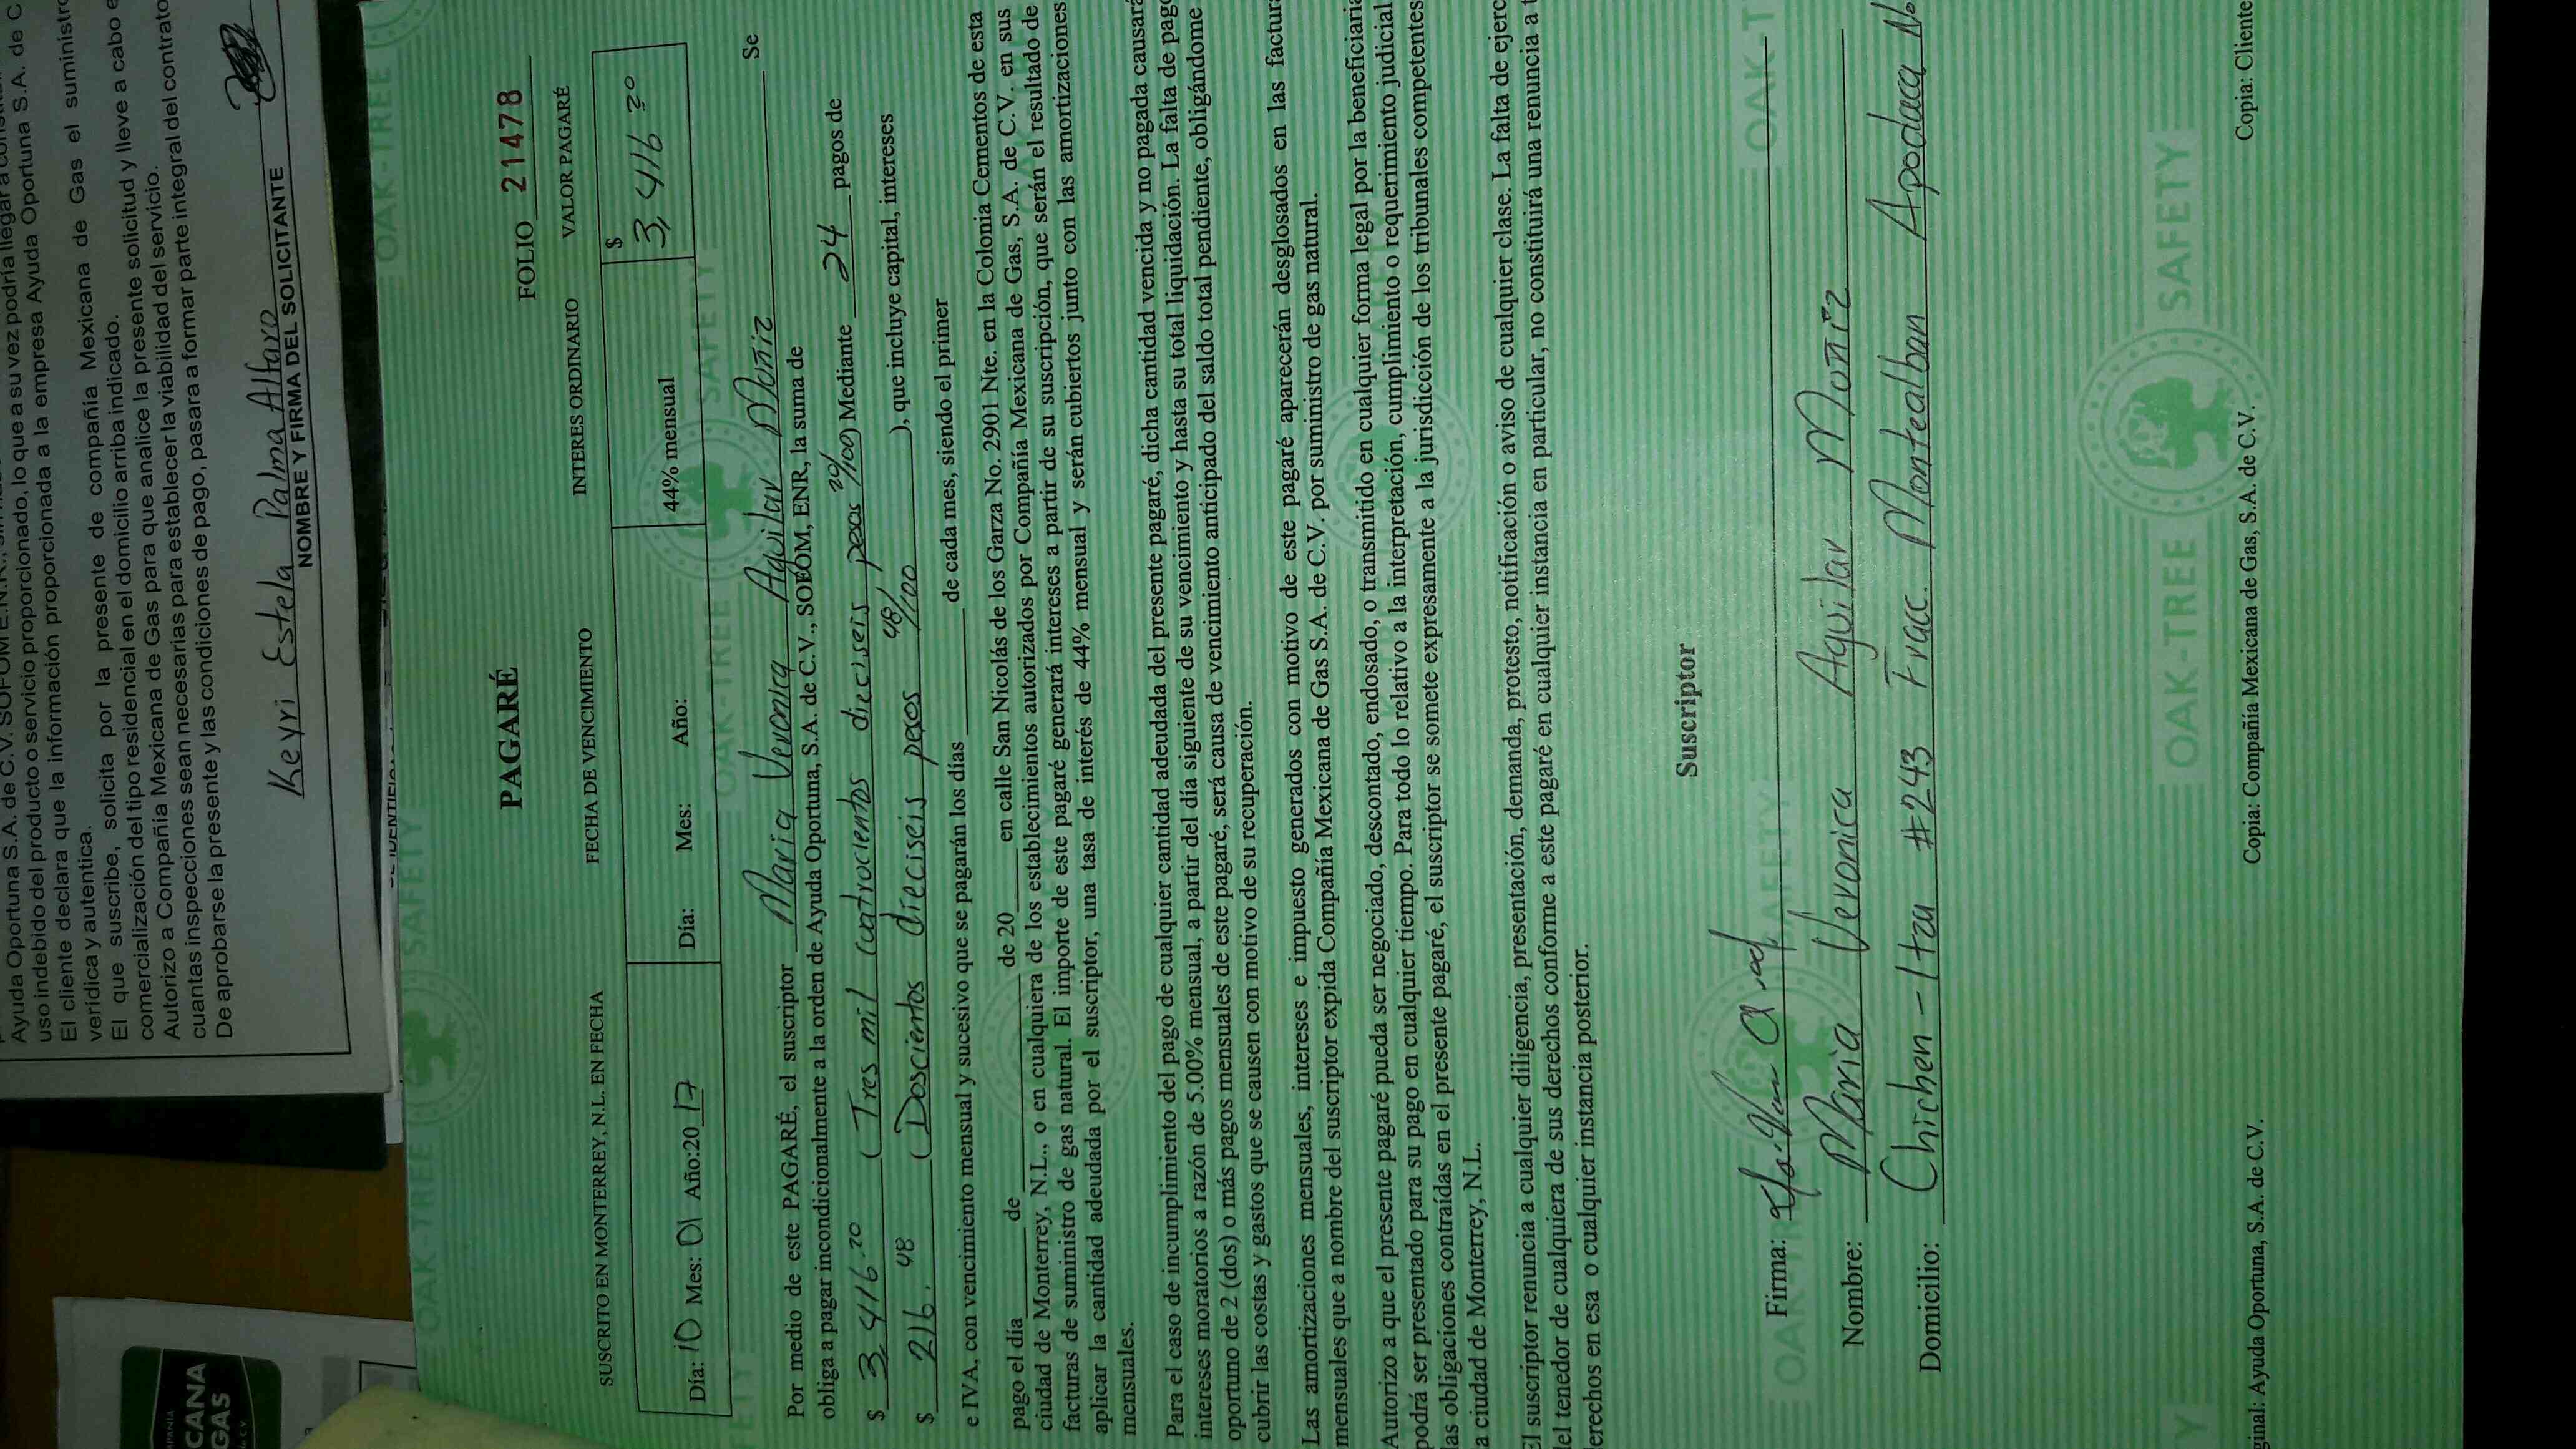 Ayuda Oportuna S.A. de C.V. SOFOM E.N.R.,
uso indebido del producto o servicio proporcionado, lo que a su vez podría llegar a
El cliente declara que la información proporcionada a la empresa Ayuda Oportuna S.A. de C
verídica y autentica.
El que suscribe, solicita por la presente de compañia Mexicana de Gas el suministro
comercialización del tipo residencial en el domicilio arriba indicado.
Autorizo a Compañía Mexicana de Gas para que analice la presente solicitud y lleve a cabo
cuantas inspecciones sean necesarias para establecer la viabilidad del servicio.
De aprobarse la presente y las condiciones de pago, pasara a formar parte integral del contrato
Keyri Estela Palma Alfaro
NOMBRE Y FIRMA DEL SOLICITANTE
CANA
GAS
PAGARÉ
FOLIO 21478
SUSCRITO EN MONTERREY, N.L. EN FECHA FECHA DE VENCIMIENTO INTERES ORDINARIO VALOR PAGARÉ
Día: 10 Mes: 01 Año:20 17 Día: Mes: Año: 44% mensual $ 3,416 20
Por medio de este PAGARÉ, el suscriptor Maria Veronica Aguilar Muñiz Se
obliga a pagar incondicionalmente a la orden de Ayuda Oportuna, S.A. de C.V., SOFOM, ENR, la suma de
$ 3,416.20 (Tres mil cuatrocientos dieciseis pesos 20/100) Mediante 24 pagos de
$ 216.48 (Doscientos dieciseis pesos 48/100 ), que incluye capital, intereses
e IVA, con vencimiento mensual y sucesivo que se pagarán los días ____ de cada mes, siendo el primer
pago el día ____ de ____ de 20 ____ en calle San Nicolás de los Garza No. 2901 Nte. en la Colonia Cementos de esta
ciudad de Monterrey, N.L., o en cualquiera de los establecimientos autorizados por Compañía Mexicana de Gas, S.A. de C.V. en sus
facturas de suministro de gas natural. El importe de este pagaré generará intereses a partir de su suscripción, que serán el resultado de
aplicar la cantidad adeudada por el suscriptor, una tasa de interés de 44% mensual y serán cubiertos junto con las amortizaciones
mensuales.
Para el caso de incumplimiento del pago de cualquier cantidad adeudada del presente pagaré, dicha cantidad vencida y no pagada causará
intereses moratorios a razón de 5.00% mensual, a partir del día siguiente de su vencimiento y hasta su total liquidación. La falta de pago
oportuno de 2 (dos) o más pagos mensuales de este pagaré, será causa de vencimiento anticipado del saldo total pendiente, obligándome
cubrir las costas y gastos que se causen con motivo de su recuperación.
Las amortizaciones mensuales, intereses e impuesto generados con motivo de este pagaré aparecerán desglosados en las factur
mensuales que a nombre del suscriptor expida Compañía Mexicana de Gas S.A. de C.V. por suministro de gas natural.
Autorizo a que el presente pagaré pueda ser negociado, descontado, endosado, o transmitido en cualquier forma legal por la beneficiaria
podrá ser presentado para su pago en cualquier tiempo. Para todo lo relativo a la interpretación, cumplimiento o requerimiento judicial
las obligaciones contraídas en el presente pagaré, el suscriptor se somete expresamente a la jurisdicción de los tribunales competentes
a ciudad de Monterrey, N.L.
El suscriptor renuncia a cualquier diligencia, presentación, demanda, protesto, notificación o aviso de cualquier clase. La falta de ejerc
del tenedor de cualquiera de sus derechos conforme a este pagaré en cualquier instancia en particular, no constituirá una renuncia a t
erechos en esa o cualquier instancia posterior.
Suscriptor
Firma:
Nombre: Maria Veronica Aguilar Muñiz
Domicilio: Chichen-Itza #243 Fracc. Montealban Apodaca N.
OAK-TREE SAFETY
ginal: Ayuda Oportuna, S.A. de C.V. Copia: Compañía Mexicana de Gas, S.A. de C.V. Copia: Cliente